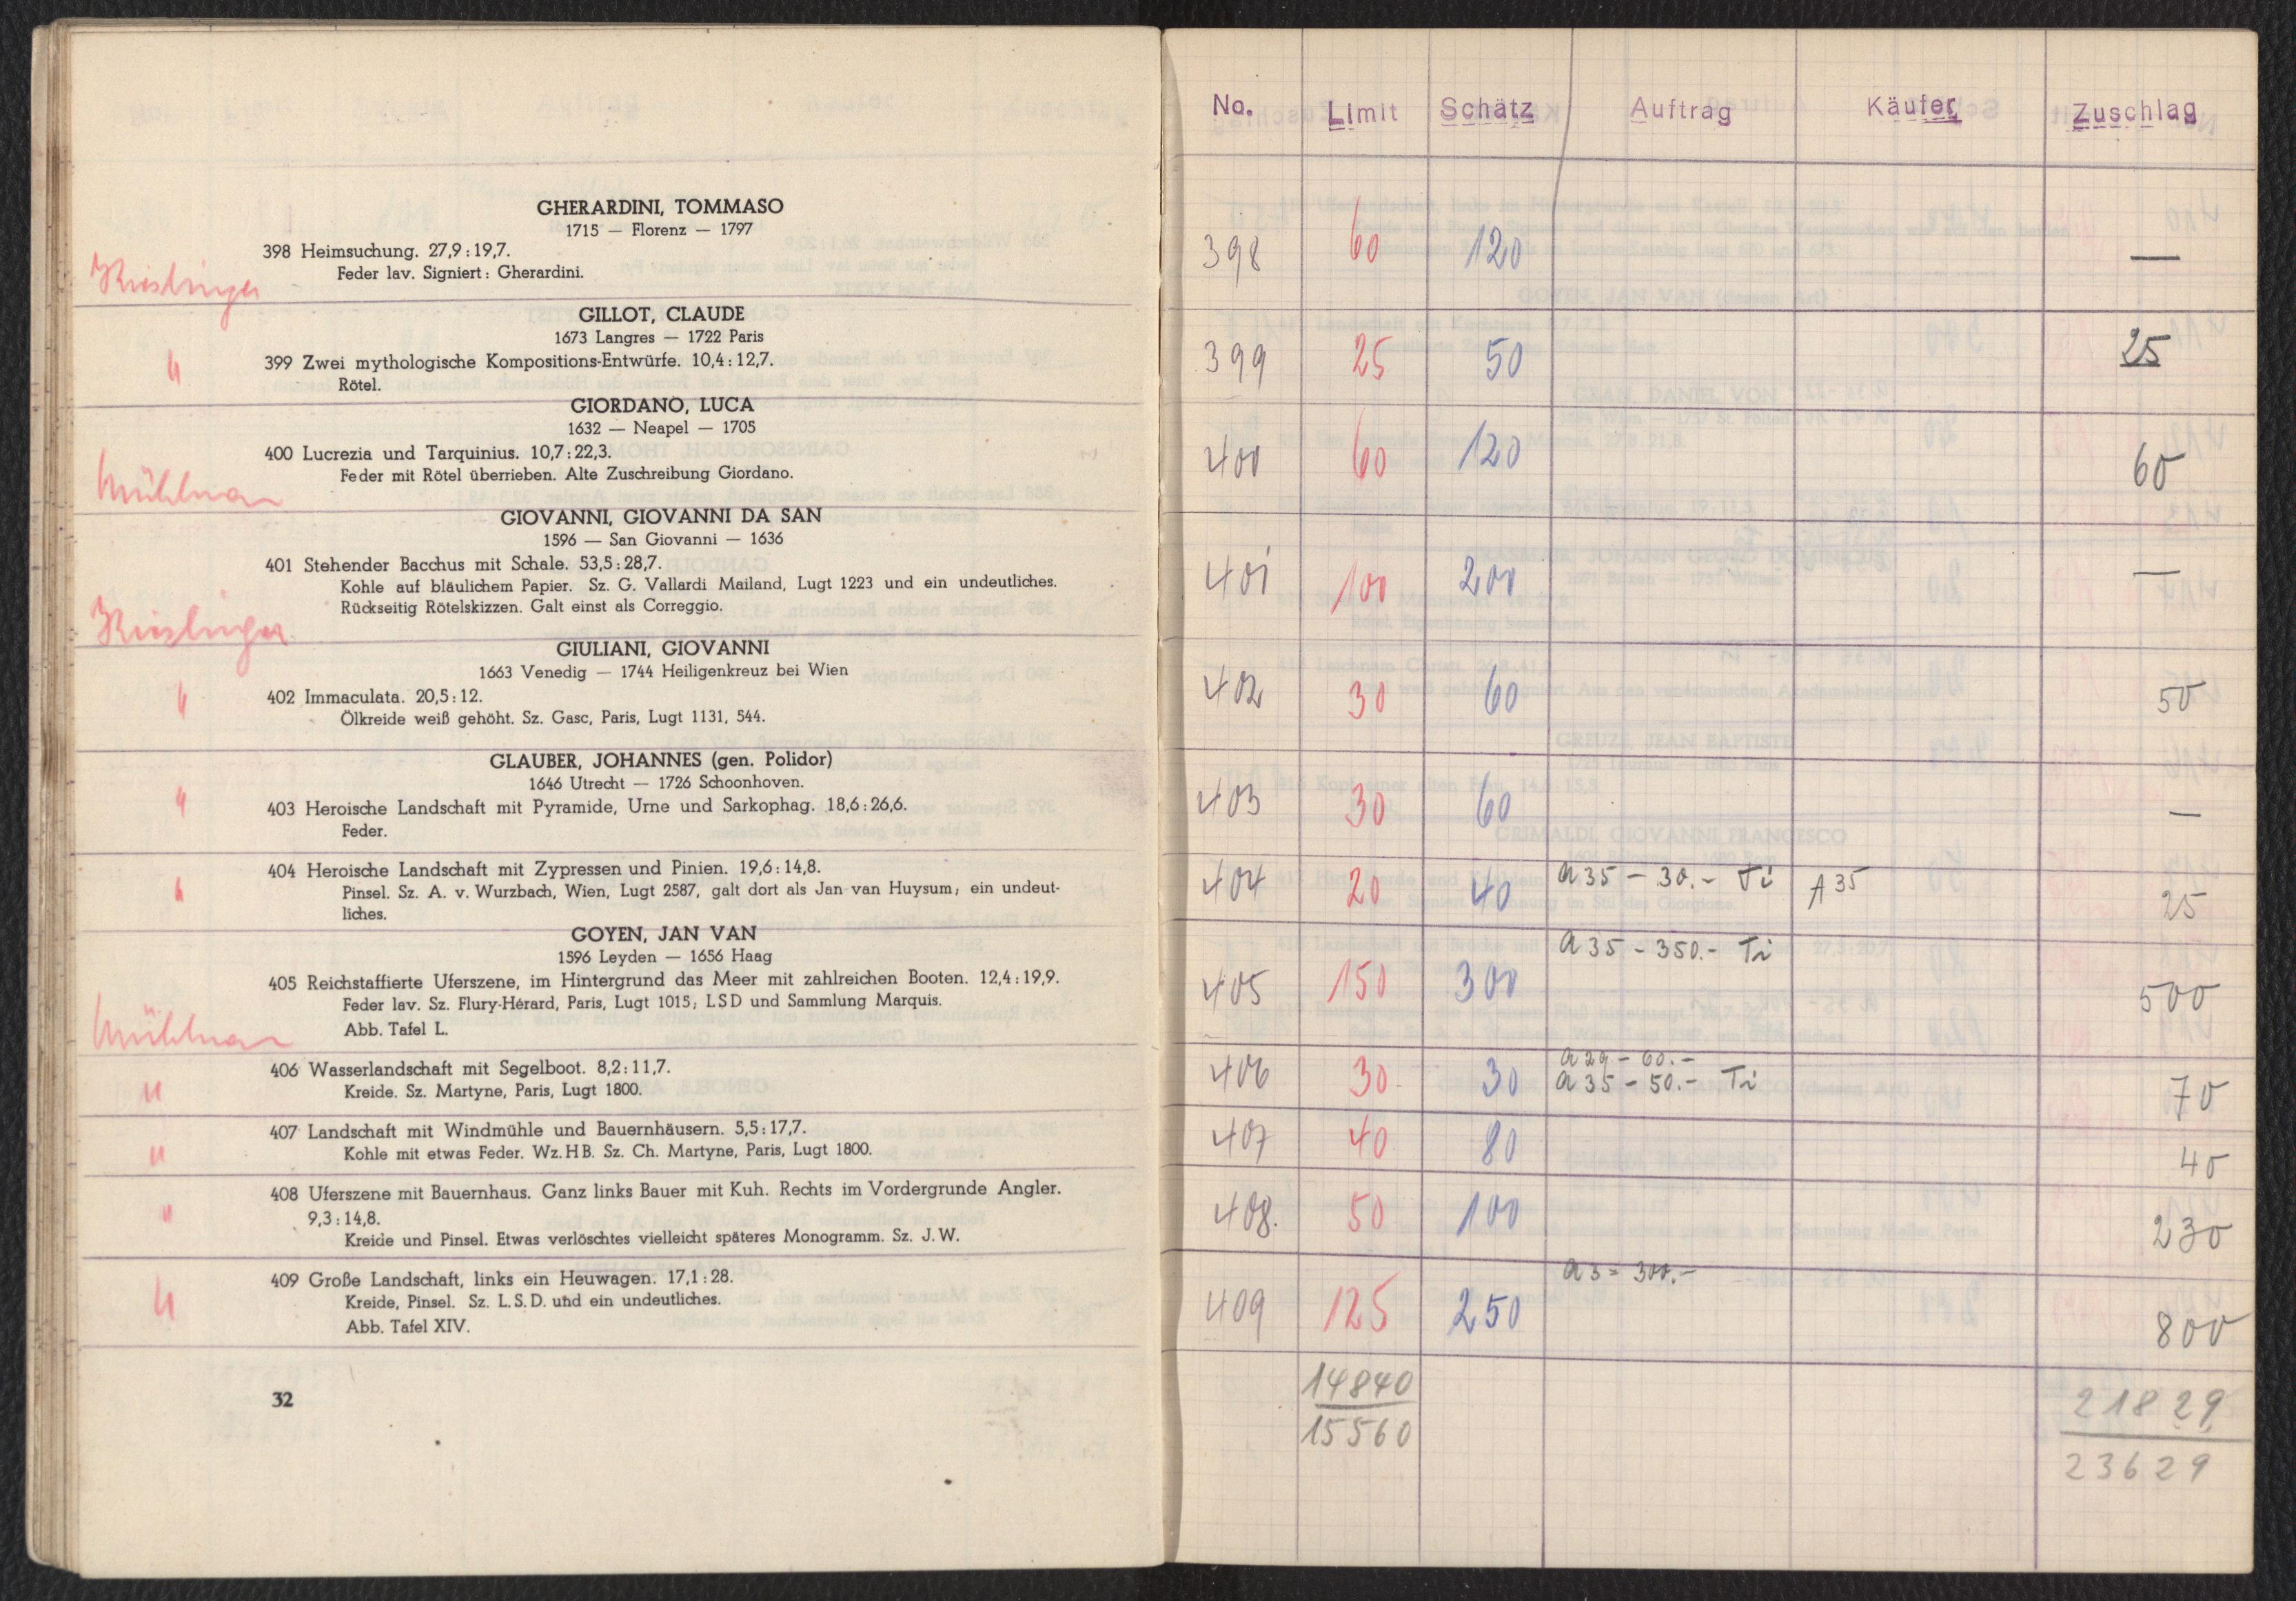 GHERARDINI, TOMMASO
1715 — Florenz — 1797
398 Heimsuchung. 27,9 : 19,7.
Feder lav. Signiert: Gherardini.
GILLOT, CLAUDE
1673 Langres — 1722 Paris
399 Zwei mythologische Kompositions-Entwürfe. 10,4 : 12,7.
Rötel.
GIORDANO, LUCA
1632 — Neapel — 1705
400 Lucrezia und Tarquinius. 10,7 : 22,3.
Feder mit Rötel überrieben. Alte Zuschreibung Giordano.
GIOVANNI, GIOVANNI DA SAN
1596 — San Giovanni — 1636
401 Stehender Bacchus mit Schale. 53,5 : 28,7.
Kohle auf bläulichem Papier. Sz. G. Vallardi Mailand, Lugt 1223 und ein undeutliches.
Rückseitig Rötelskizzen. Galt einst als Correggio.
GIULIANI, GIOVANNI
1663 Venedig — 1744 Heiligenkreuz bei Wien
402 Immaculata. 20,5 : 12.
Ölkreide weiß gehöht. Sz. Gasc, Paris, Lugt 1131, 544.
GLAUBER, JOHANNES (gen. Polidor)
1646 Utrecht — 1726 Schoonhoven.
403 Heroische Landschaft mit Pyramide, Urne und Sarkophag. 18,6 : 26,6.
Feder.
404 Heroische Landschaft mit Zypressen und Pinien. 19,6 : 14,8.
Pinsel. Sz. A. v. Wurzbach, Wien, Lugt 2587, galt dort als Jan van Huysum; ein undeut-
liches.
GOYEN, JAN VAN
1596 Leyden — 1656 Haag
405 Reichstaffierte Uferszene, im Hintergrund das Meer mit zahlreichen Booten. 12,4 : 19,9.
Feder lav. Sz. Flury-Hérard, Paris, Lugt 1015; LSD und Sammlung Marquis.
Abb. Tafel L.
406 Wasserlandschaft mit Segelboot. 8,2 : 11,7.
Kreide. Sz. Martyne, Paris, Lugt 1800.
407 Landschaft mit Windmühle und Bauernhäusern. 5,5 : 17,7.
Kohle mit etwas Feder. Wz. HB. Sz. Ch. Martyne, Paris, Lugt 1800.
408 Uferszene mit Bauernhaus. Ganz links Bauer mit Kuh. Rechts im Vordergrunde Angler.
9,3 : 14,8.
Kreide und Pinsel. Etwas verlöschtes vielleicht späteres Monogramm. Sz. J. W.
409 Große Landschaft, links ein Heuwagen. 17,1 : 28.
Kreide, Pinsel. Sz. L. S. D. und ein undeutliches.
Abb. Tafel XIV.
32
No. Limit Schätz Auftrag Käufer Zuschlag
398 60 120 —
399 25 50 25
400 60 120 60
401 100 200 —
402 30 60 50
403 30 60 —
404 20 40 a 35 - 30.- Ti A 35 25
a 35 - 350.- Ti
405 150 300 500
a 29 - 60.-
406 30 30 a 35 - 50.- Ti 70
407 40 80 40
408. 50 100 230
a 3 - 300.-
409 125 250 800
14840 21829
15560 23629